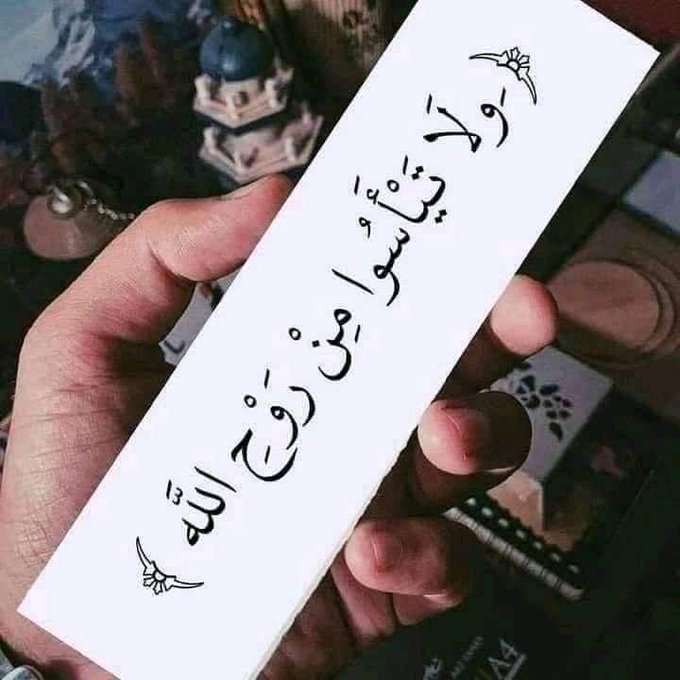 ﴿وَلَا تَيْأَسُوا مِنْ رَوْحِ اللَّه﴾
A4